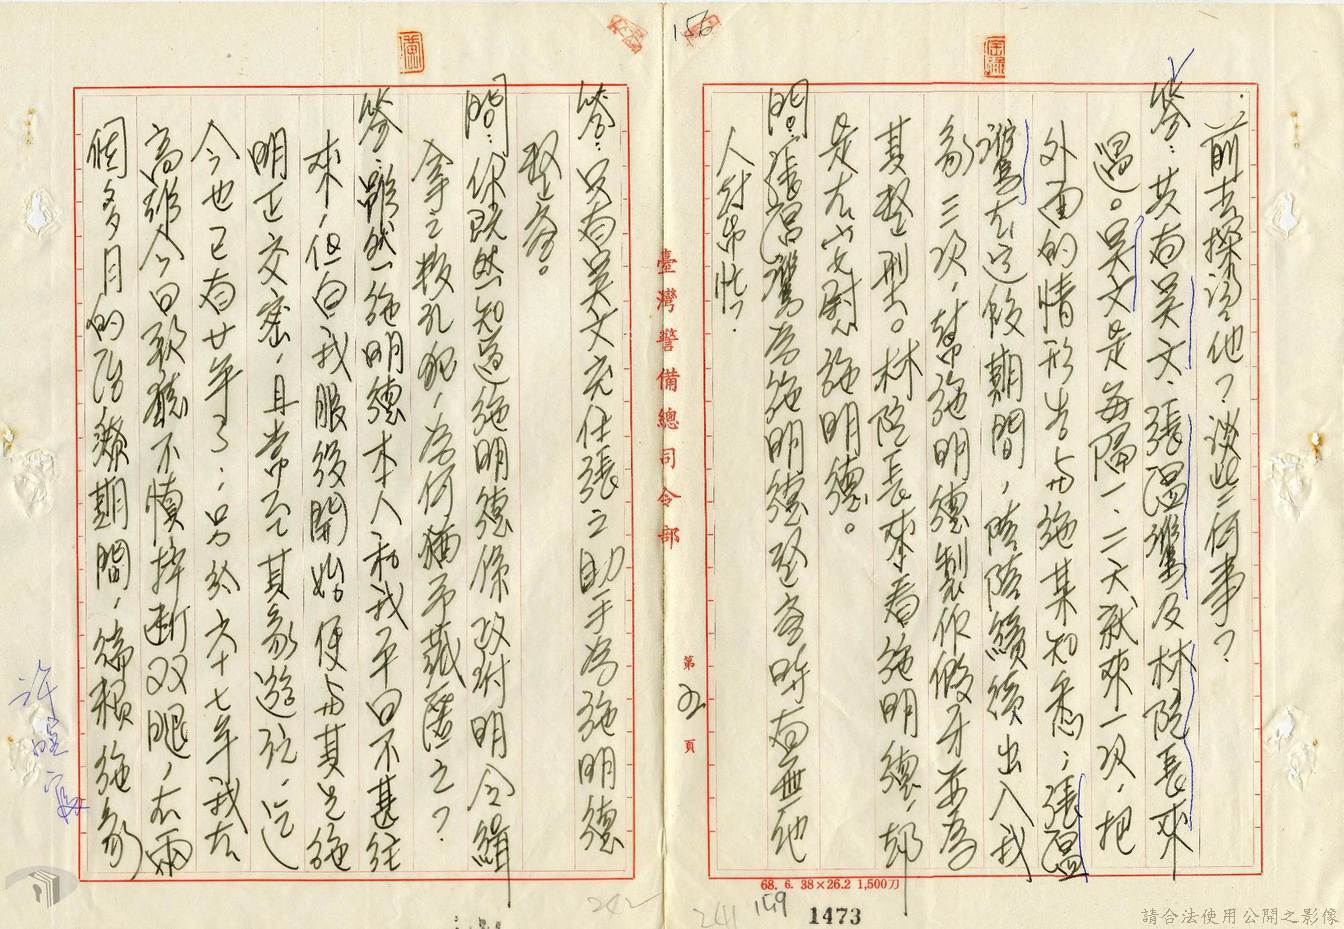 156
前去探望他？談些何事？
答：共有吳文、張溫鷹及林院長來
過。吳文是每隔一、二天就來一次，把
外面的情形告與施某知悉；張溫
鷹在這段期間，陸陸續續出入我
家三次，幫施明德製作假牙並為
其整型。林院長來看施明德，都
是在安慰施明德。
問：張溫鷹為施明德整容時有無他
人在幫忙？
答：只有吳文充任張之助手為施明德
整容。
問：你既然知道施明德係政府明令緝
拿之叛亂犯，為何猶予藏匿之？
答：雖然施明德本人和我平日不甚往
來，但自我服役開始便與其兄施
明正交密，且常至其家遊玩，迄
今也已有廿年了；另於六十七年我在
高雄今日歌廳不慎摔斷双腿，在兩
個多月的治療期間，端賴施家
臺灣警備總司令部
第
頁
68. 6. 38×26.2 1,500刀
242
241
159
1473
請合法使用公開之影像